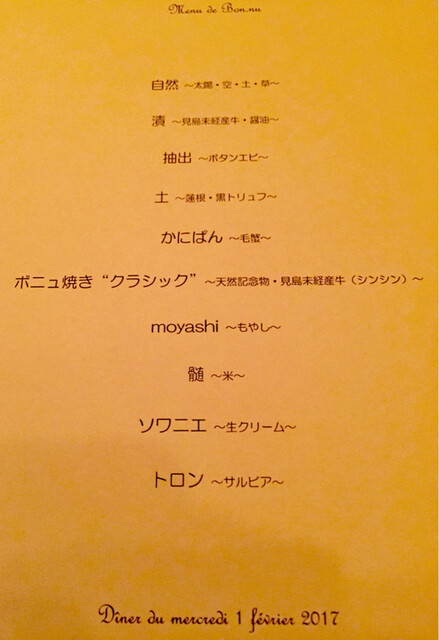 Menu de Bon.nu
自然 ～太陽・空・土・草～
漬 ～見島未経産牛・醤油～
抽出 ～ボタンエビ～
土 ～蓮根・黒トリュフ～
かにぱん ～毛蟹～
ボニュ焼き “クラシック” ～天然記念物・見島未経産牛（シンシン）～
moyashi ～もやし～
髄 ～米～
ソワニエ ～生クリーム～
トロン ～サルビア～
Dîner du mercredi 1 février 2017